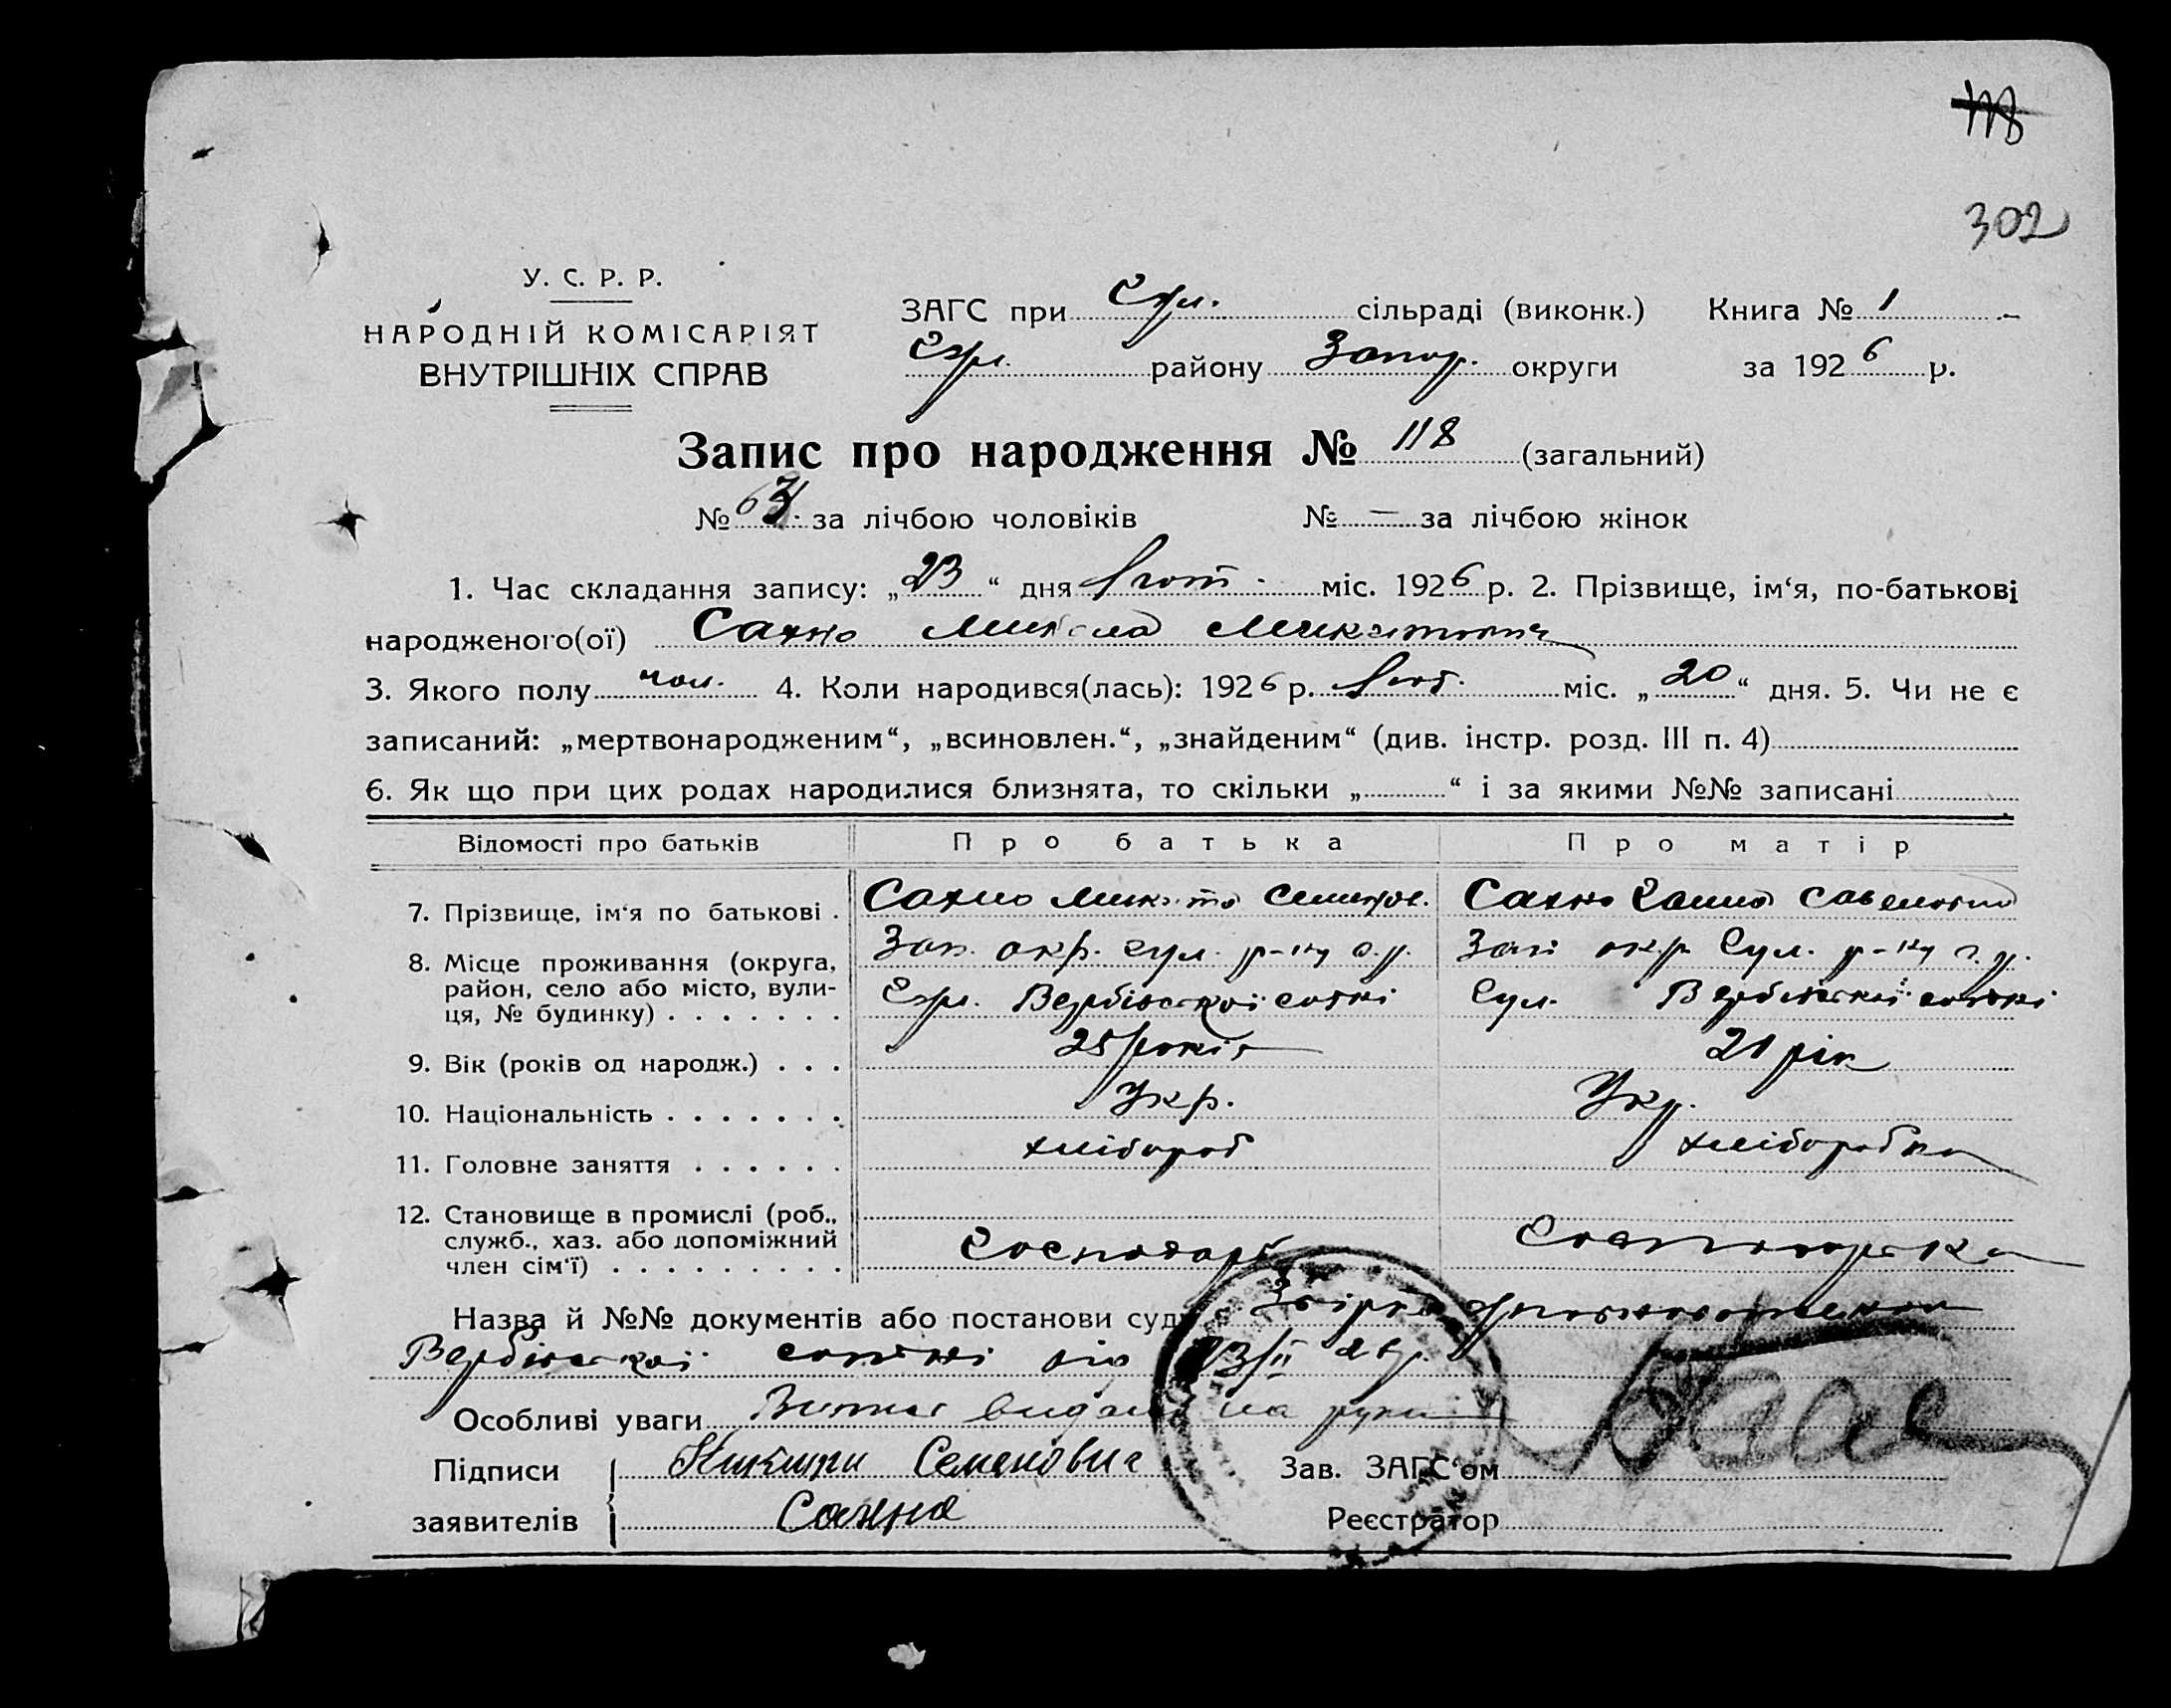 118
302
У. С. Р. Р.
НАРОДНІЙ КОМІСАРІЯТ
ВНУТРІШНІХ СПРАВ
ЗАГС при Гул. сільраді (виконк.) Книга № 1
Гул. району Запор. округи за 1926 р.
Запис про народження № 118 (загальний)
№ за лічбою чоловіків № — за лічбою жінок
1. Час складання запису: „23“ дня Лют. міс. 1926 р. 2. Прізвище, ім‘я, по-батькові
народженого(ої) Сахно Микола Микитович
3. Якого полу чол. 4. Коли народився(лась): 1926 р. Лют. міс. „20“ дня. 5. Чи не є
записаний: „мертвонародженим“, „всиновлен.“, „знайденим“ (див. інстр. розд. III п. 4)
6. Як що при цих родах народилися близнята, то скільки „ “ і за якими №№ записані
Відомості про батьків Про батька Про матір
7. Прізвище, ім‘я по батькові . Сахно Микита Семенов. Сахно Ганна Савелівна
8. Місце проживання (округа, Зап. окр. Гул. р-ну Зап. окр. Гул. р-ну
район, село або місто, вули- Гул. Вербівської сотні Гул. Вербівської сотні
ця, № будинку) . . . . . . .
9. Вік (років од народж.) . . . 25 років 21 рік
10. Національність . . . . . . . Укр. Укр.
11. Головне заняття . . . . . . хлібороб хліборобка
12. Становище в промислі (роб.,
служб., хаз. або допоміжний Господарь Господарька
член сім‘ї) . . . . . . . . .
Назва й №№ документів або постанови суду
Вербівської сотні від 23/II 26 р.
Особливі уваги видано на руки
Підписи Семенович Зав. ЗАГС‘ом
заявителів Сахно Реєстратор